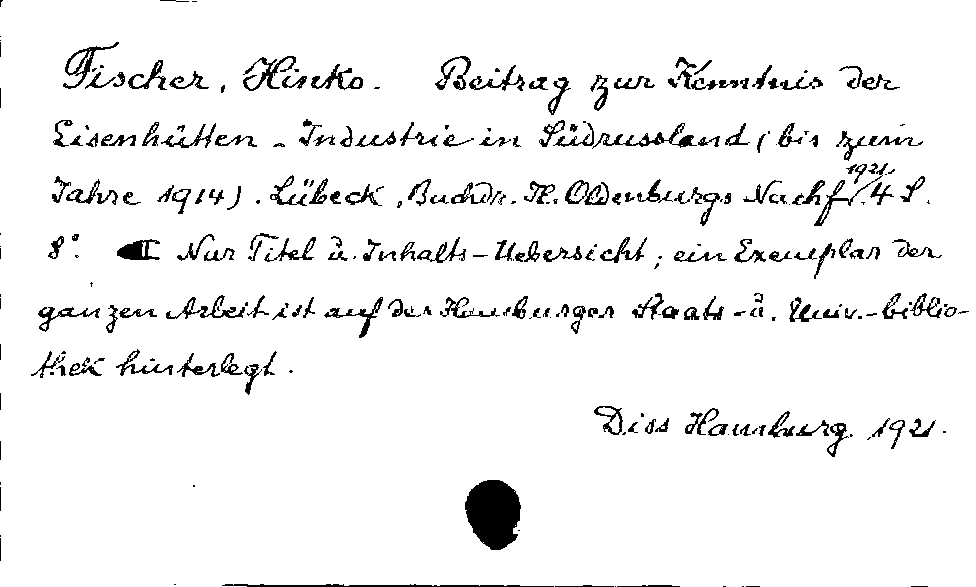 Fischer, Hinko. Beitrag zur Kenntnis der
Eisenhütten-Industrie in Südrussland (bis zum
Jahre 1914). Lübeck, Buchdr. H. Oldenburgs Nachf. 1921. 4 S.
8°. Nur Titel u. Inhalts-Uebersicht; ein Exemplar der
ganzen Arbeit ist auf der Hamburger Staats- u. Univ.-biblio-
thek hinterlegt.
Diss Hamburg 1921.